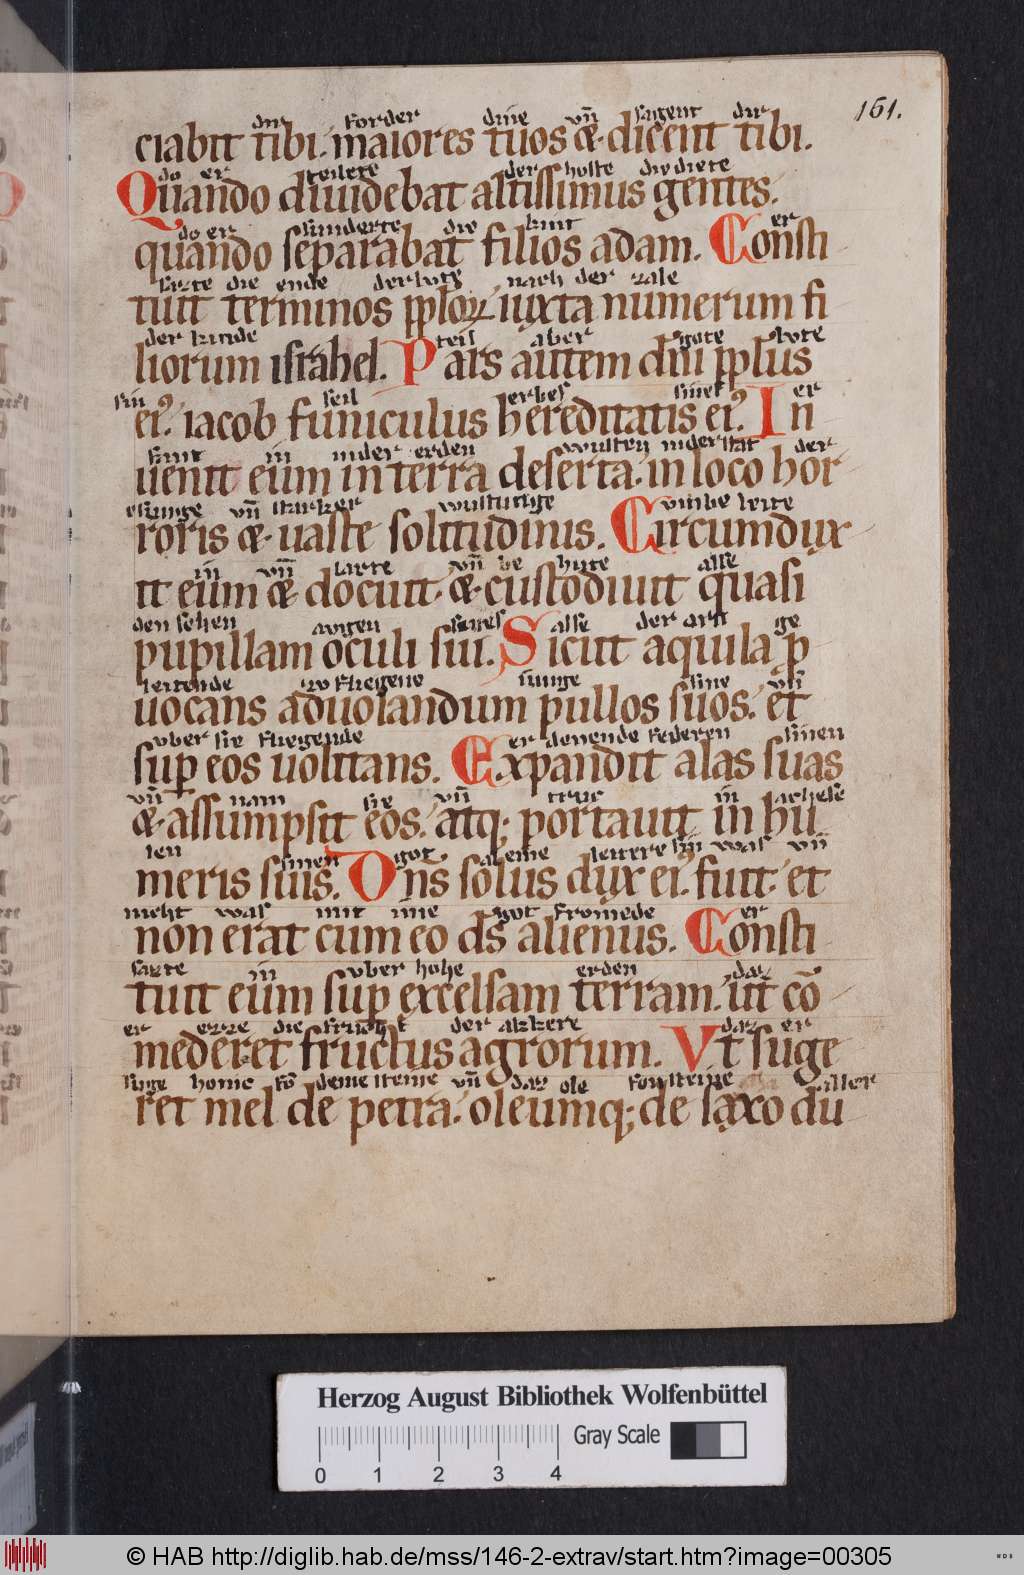 161.
din forder dine vñ sagent dir
ciabit tibi. maiores tuos & dicent tibi.
do er teilete der hoste die diete
Quando diuidebat altissimus gentes.
do er sunderte die kint er
quando separabat filios adam. Consti
sazte die ende der lvte nach der zale
tuit terminos pploꝝ iuxta numerum fi
der kinde teil aber gote lvte
liorum israhel. Pars autem dñi pplus
sin seil erbes sines er
ei9. iacob funiculus hereditatis ei9. In
in inder erden wusten inder stat der
uenit eum in terra deserta. in loco hor
vñ starker vmbe leite
roris & uaste solitudinis. Circumdux
in vñ larte vñ be hute alse
it eum & docuit. & custodiuit quasi
den sehen avgen sines alse der arn ge
pupillam oculi sui. Sicut aquila ꝓ
leitende zv fliegene iunge sine vñ
uocans aduolandum pullos suos. et
vber sie fliegende er denende federen sinen
suꝑ eos uolitans. Expandit alas suas
vñ nam sie vñ truc in achsle
& assumpsit eos. atq; portauit in hu
len sinen got aleine leitere sin was vñ
meris suis. Dns̄ solus dux ei9. fuit. et
nieht was mit ime got fromede er
non erat cum eo ds̄ alienus. Consti
sazte in vber hohe erden daz
tuit eum suꝑ excelsam terram. ut cō
er ezze die fruoht der akkere daz er
mederet fructus agrorum. Vt suge
suge honic fō deme steine vñ daz ole fon steine aller
ret mel de petra. oleumq; de saxo du
Herzog August Bibliothek Wolfenbüttel
Gray Scale
0 1 2 3 4
© HAB http://diglib.hab.de/mss/146-2-extrav/start.htm?image=00305